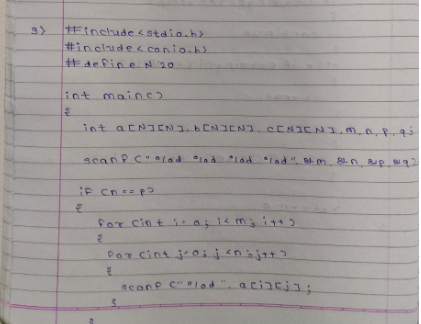 9)
#include<stdio.h>
#include<conio.h>
#define N 20
int main()
{
int a[N][N], b[N][N], c[N][N], m, n, p, q;
scanf("%d %d %d %d", &m, &n, &p, &q);
if (n==p)
{
for(int i=0; i<m; i++)
{
for(int j=0; j<n; j++)
{
scanf("%d", a[i][j];
}
}